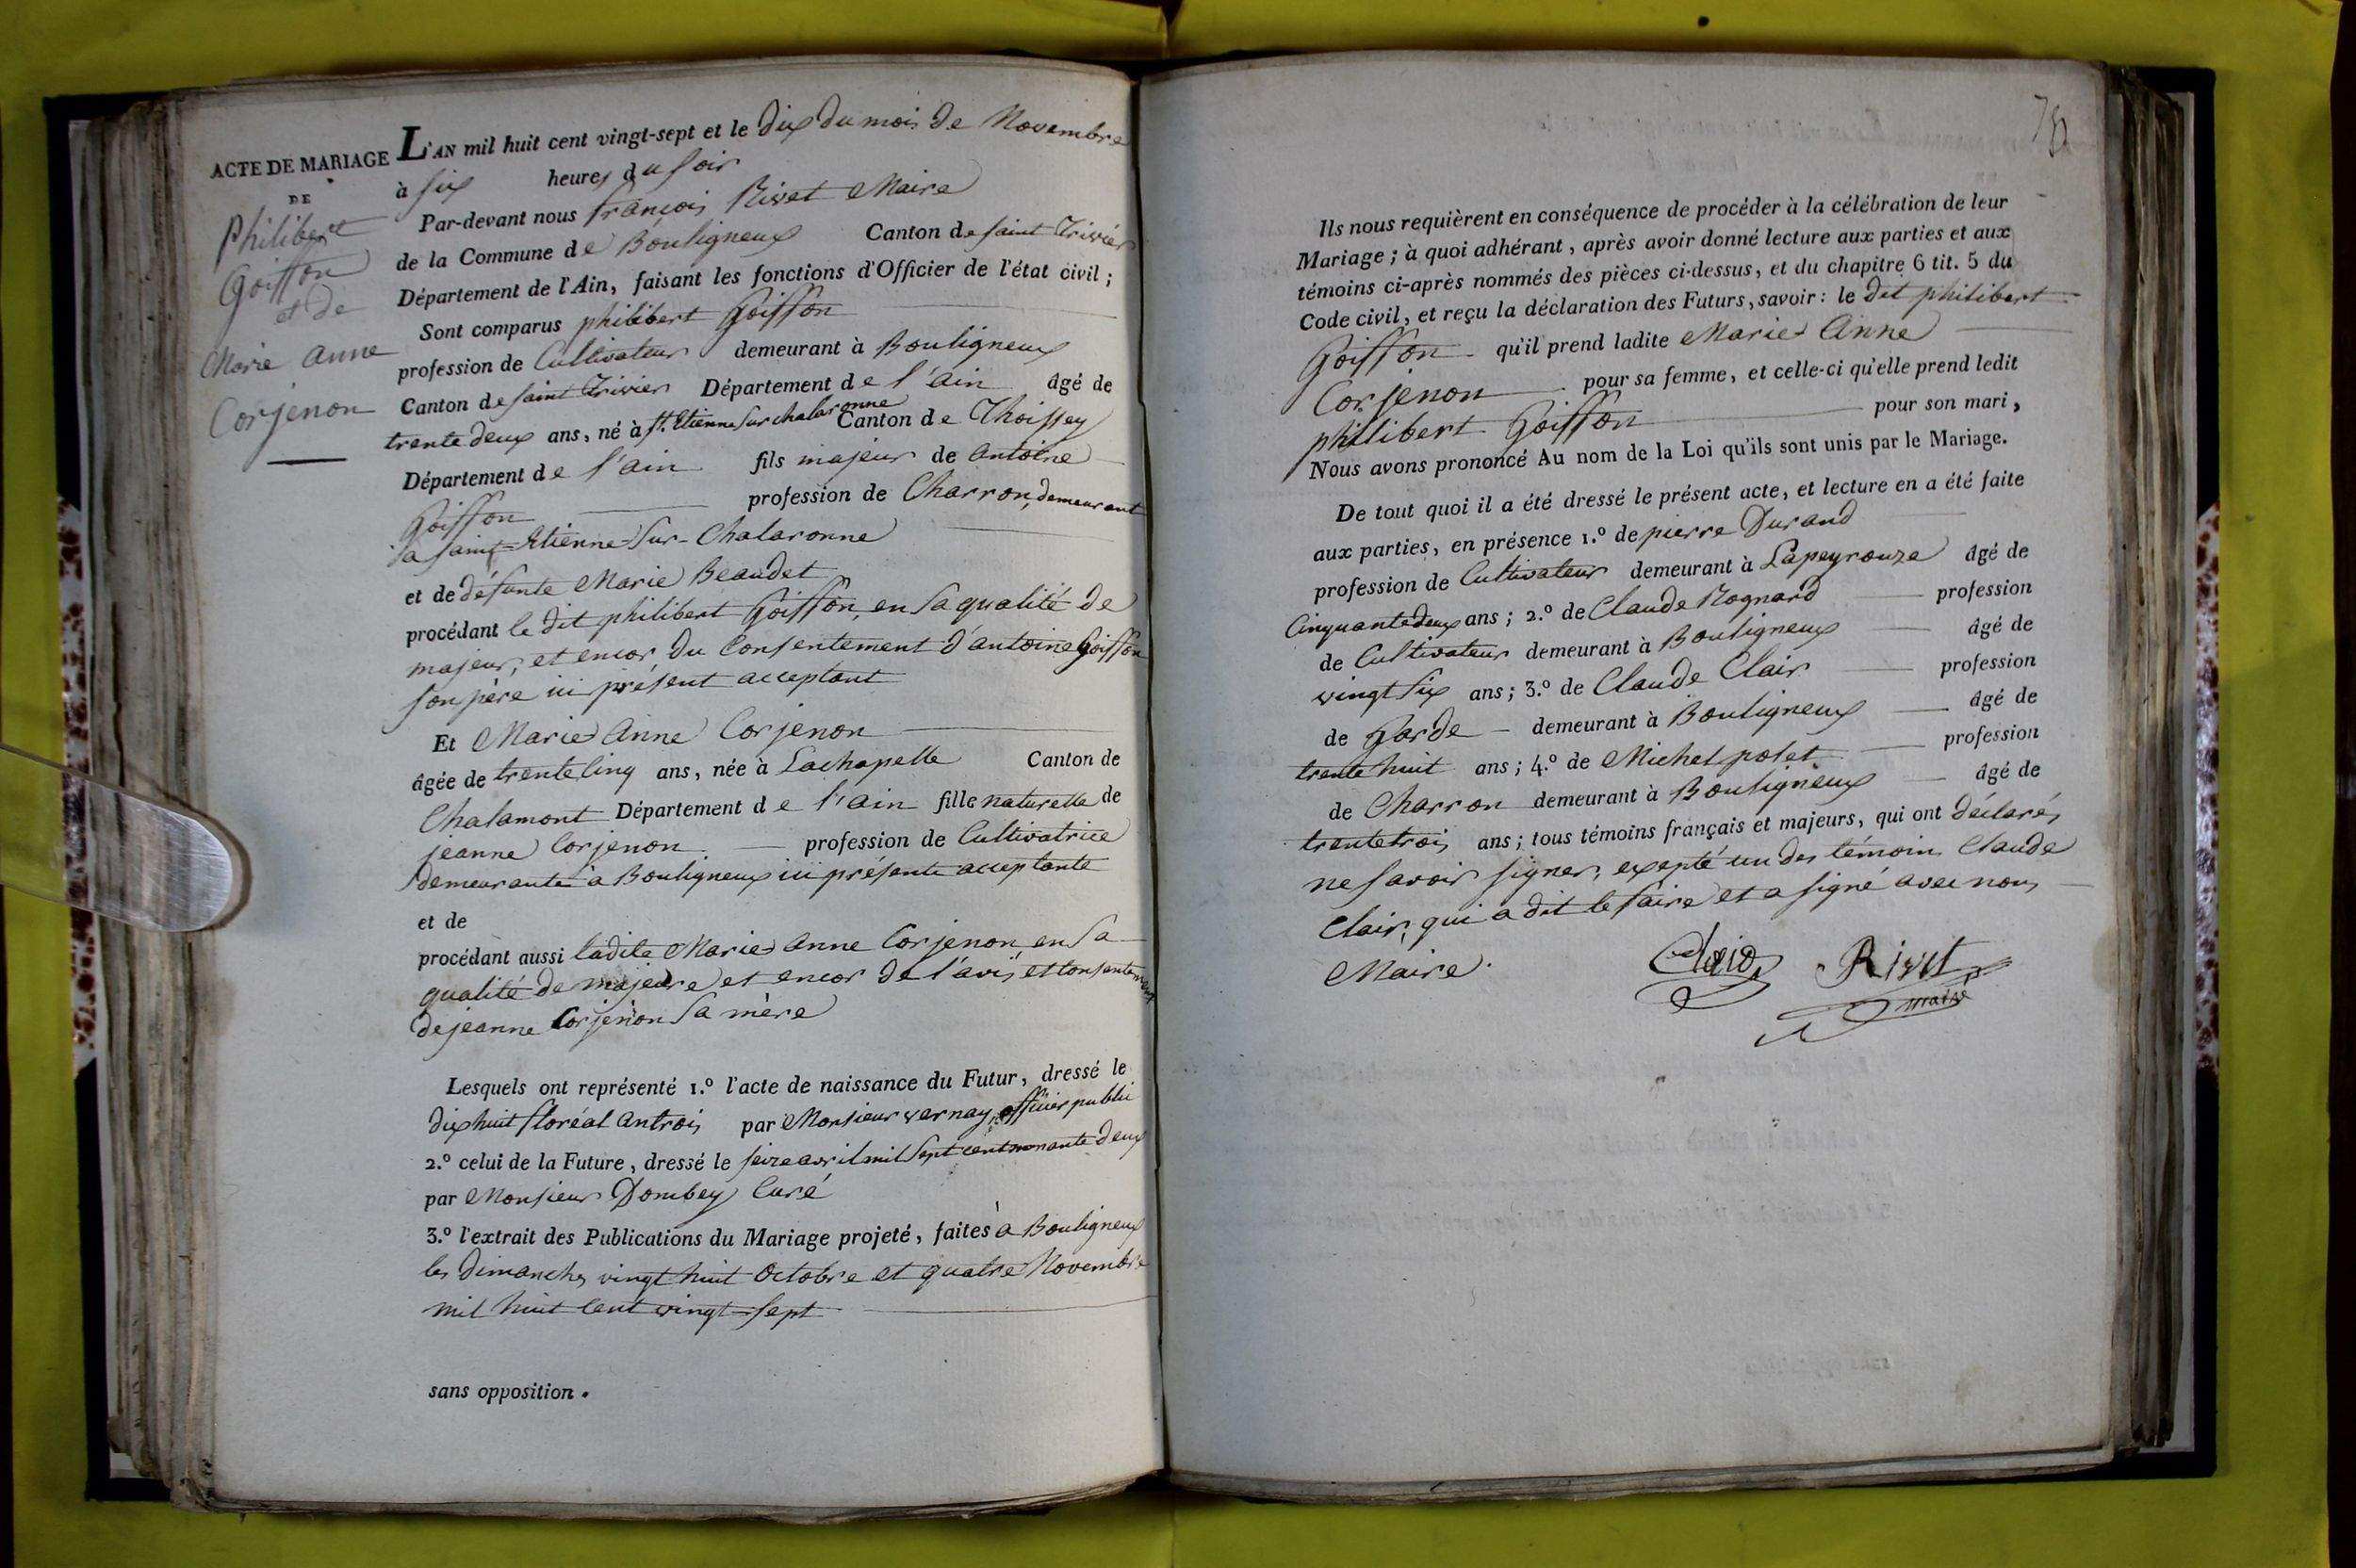 ACTE DE MARIAGE
DE
Philibert
Goiffon
et de
Marie Anne
Corjenon
L'AN mil huit cent vingt-sept et le dix du mois de Novembre
à six heures du soir
Par-devant nous françois Rivet Maire
de la Commune de Bouligneux Canton de saint Trivier
Département de l'Ain, faisant les fonctions d'Officier de l'état civil ;
Sont comparus philibert Goiffon
profession de Cultivateur demeurant à Bouligneux
Canton de saint Trivier Département de l'ain âgé de
trente deux ans, né à St. Etienne sur chalaronne Canton de Thoissey
Département de l'ain fils majeur de antoine
Goiffon profession de Charron, demeurant
à saint-Etienne-sur-Chalaronne
et de défunte Marie Beaudet
procédant le dit philibert Goiffon, en sa qualité de
majeur, et encor du Consentement d'antoine Goiffon
son père ici présent acceptant
Et Marie Anne Corjenon
âgée de trente cinq ans, née à Lachapelle Canton de
Chalamont Département de l'ain fille naturelle de
jeanne Corjenon profession de Cultivatrice
demeurante à Bouligneux ici présente acceptante
et de
procédant aussi ladite Marie Anne Corjenon en sa
qualité de majeure et encor de l'avis et consentement
de jeanne Corjenon sa mère
Lesquels ont représenté 1.º l'acte de naissance du Futur, dressé le
dix huit floréal an trois par Monsieur vernay, officier public
2.º celui de la Future, dressé le seize avril mil sept cent nonante deux
par Monsieur Dombey Curé
3.º l'extrait des Publications du Mariage projeté, faites à Bouligneux
les dimanches vingt huit Octobre et quatre Novembre
mil huit cent vingt-sept
sans opposition.
78
Ils nous requièrent en conséquence de procéder à la célébration de leur
Mariage ; à quoi adhérant, après avoir donné lecture aux parties et aux
témoins ci-après nommés des pièces ci-dessus, et du chapitre 6 tit. 5 du
Code civil, et reçu la déclaration des Futurs, savoir : le dit philibert
Goiffon qu'il prend ladite Marie Anne
Corjenon pour sa femme, et celle-ci qu'elle prend ledit
philibert Goiffon pour son mari,
Nous avons prononcé Au nom de la Loi qu'ils sont unis par le Mariage.
De tout quoi il a été dressé le présent acte, et lecture en a été faite
aux parties, en présence 1.º de pierre Durand
profession de Cultivateur demeurant à Lapeyrouze âgé de
Cinquante deux ans ; 2.º de Claude Rognard profession
de Cultivateur demeurant à Bouligneux âgé de
vingt six ans ; 3.º de Claude Clair profession
de Garde demeurant à Bouligneux âgé de
trente huit ans ; 4.º de Michel polet profession
de Charron demeurant à Bouligneux âgé de
trente trois ans ; tous témoins français et majeurs, qui ont déclarés
ne savoir signer, excepté un des témoins Claude
Clair, qui a dit le faire et a signé avec nous
Maire.
Clair Rivet
maire